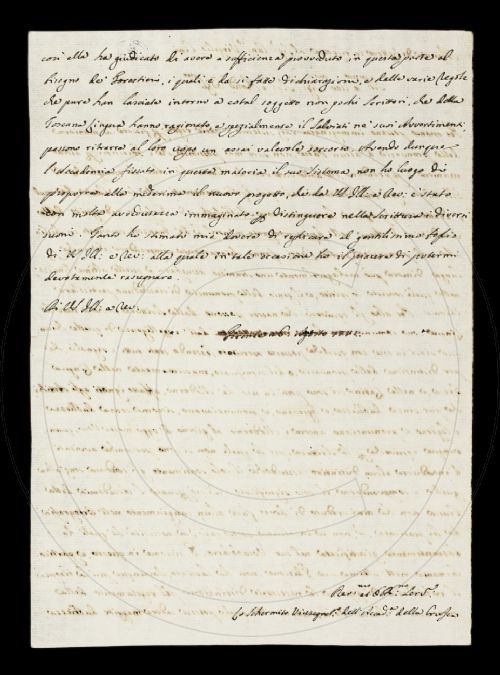 così ella ha giudicato di avere a sufficienza provveduto in questa parte al
bisogno de' Forestieri, i quali e da sì fatte dichiarazioni, e dalle varie Regole
che pure han lasciate intorno a cotal soggetto non pochi Scrittori, che della
Toscana Lingua hanno ragionato e spezialmente il Salviati ne' suoi Avvertimenti,
possono ritrarre al loro uopo un assai valevole soccorso. Avendo dunque
l'Accademia fissato in questa materia il suo sistema, non ho luogo di
proporre alla medesima il nuovo progetto, che da V.S. Ill: e Rev: è stato
con molta avvedutezza immaginato p distinguere nella scrittura i diversi
suoni. Tanto ho stimato mio dovere di replicare al gentilissimo foglio
di V.S. Ill: e Rev: alla quale in tale occasione ho il piacere di potermi
devotamente rassegnare.
Di V.S. Ill: e Rev:
Agosto
Dev.mo ed Obb.mo Serv.e
Lo Schermito Vicesegret.o dell'Accad.a della Crusca